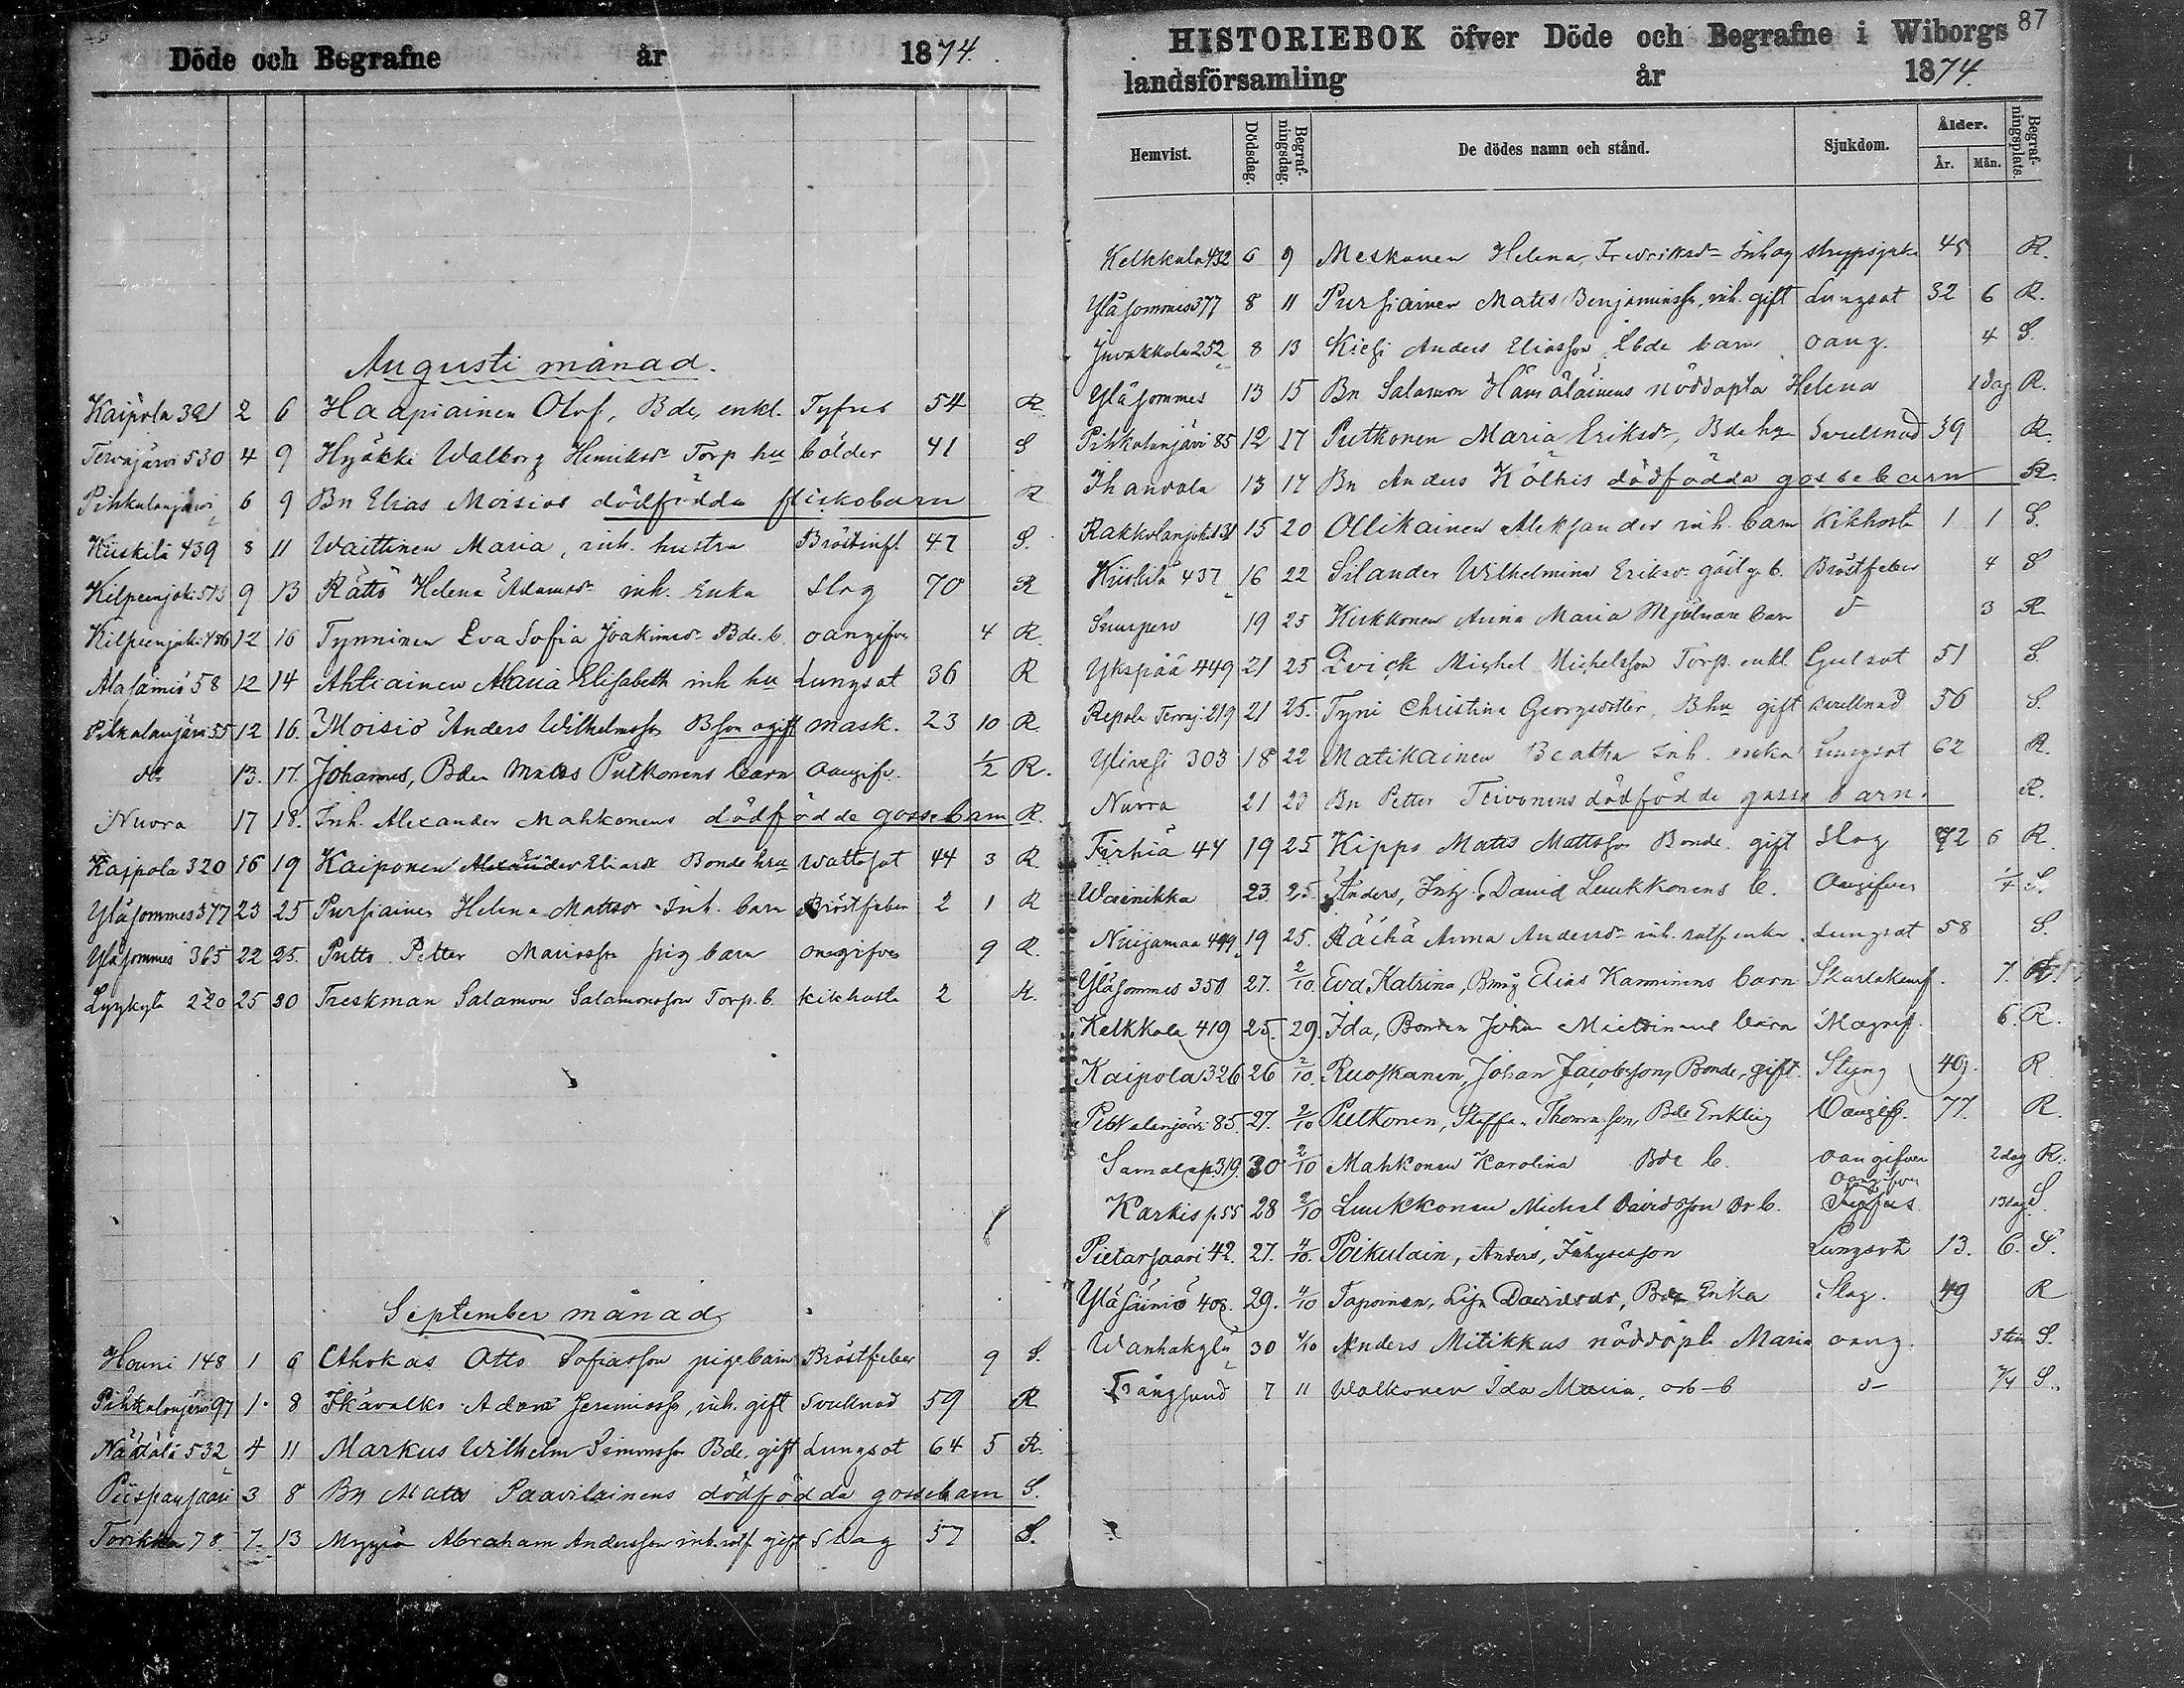 Döde och Begrafne år 1874.
Augusti månad.
Kaipola 321 2 6 Haapiainen Olof, Bde, enkl. Tyfus 54 R
Tervajärvi 530 4 9 Hyökki Walborg Henriksdr Torp hu bölder 41 S
Pihkalanjärvi 6 9 Bn Elias Moisios dödfödda flickobarn R
Kiiskilä 439 8 11 Waittinen Maria, inh. hustru Bröstinfl 47 S.
Kilpeenjoki 513 9 13 Rättö Helena Adamsdr inh. Enka slag 70 R
Kilpeenjoki 486 12 16 Tynninen Eva Sofia Joakimsdr Bde. b. oangifven 4 R.
Alasäiniö 58 12 14 Ahtiainen Maria Elisabeth inh hu Lungsot 36 R
Pihkalanjärvi 55 12 16. Moisio Anders Wilhelmsson Bson ogift mask. 23 10 R.
do 13. 17. Johannes, Bden Matts Putkonens barn oangifv. 1/2 R.
Nuora 17 18. Inh. Alexander Mahkonens dödfödde gossebarn R.
Kaipola 320 16 19 Kaiponen Eva Eliasdr Bonde hru Wattsot 44 3 R
Yläsommes 377 23 25 Pursiainen Helena Mattsdr Inh. barn Bröstfeber 2 1 R
Yläsommes 365 22 25. Putto Petter Mariasson pig barn oangifven 9 R.
Lyykylä 220 25 30 Treskman Salamon Salamonsson Torp. b. kikhosta 2 R.
September månad
Houni 148 1 6 Ahokas Otto Sofiasson pigebarn Bröstfeber 9 S.
Pihkalanjärvi 97 1. 8 Ikävalko Adam Jeremiasson, inh. gift Svullnad 59 R
Näätälä 532 4 11 Markus Wilhelm Simonsson Bde, gift Lungsot 64 5 R.
Piispansaari 3 8 Bn Matts Paavilainens dödfödda gossebarn S.
Torikka 78 7. 13 Myyrä Abraham Andersson inh. rotf gift Slag 57 S.
87
HISTORIEBOK öfver Döde och Begrafne i Wiborgs
landsförsamling år 1874.
Hemvist. Dödsdag. Begrafningsdag. De dödes namn och stånd. Sjukdom. Ålder. År. Mån. Begrafningsplats.
Kelkkala 432 6 9 Meskanen Helena Fredriksdr Inh og strypsjuka 45 R.
Yläsommes 377 8 11 Pursiainen Matts Benjaminsson, inh. gift Lungsot 32 6 R.
Juvakkala 252 8 13 Kiesi Anders Eliasson Bde barn oang. 4 S.
Yläsommes 13 15 Bn Salamon Hämäläinens nöddöpta Helena 1 dag R.
Pihkalanjärvi 85 12 17 Putkonen Maria Eriksdr, Bde hu Svullnad 39 R.
Ihantala 13 17 Bn Anders Kölhis dödfödda gossebarn R.
Rakkolanjoki 131 15 20 Ollikainen Aleksander inh. barn Kikhosta 1 1 S.
Kiiskilä 437 16 22 Silander Wilhelmina Eriksdr b. Bröstfeber 4 S
Suurpero 19 25 Kukkonen Anna Maria Mjölnare barn d– 3 R
Ykspää 449 21 25 Qvick Michel Michelsson Torp. enkl. Gulsot 51 S.
Repola Tervaj. 219 21 25. Tyni Christina Georgsdotter, Bhu gift svullnad 56 S.
Ylivesi 303 18 22 Matikainen Beatha Inh. enka Lungsot 62 R.
Nurra 21 23 Bn Petter Teivonens dödfödde gosse barn. R.
Tirhiä 44 19 25 Kippo Matts Mattsson Bonde. gift Slag 72 6 R.
Wainikka 23 25 Anders, Inhy. David Luukkonens b. Oangifven 1/4 S.
Niijamaa 499 19 25. Räihä Anna Andersdr inh. rotf. enka Lungsot 58 S.
Yläsommes 350 27. 2/10 Eva Katrina, Elias Kamminens barn Skarlakansf. 7. R.
Kelkkala 419 25. 29. Ida, Bonden Johan Miettinens barn Magref. 6. R.
Kaipola 326 26 2/10. Ruoskanen, Johan Jacobsson, Bonde, gift. Styng 49. R
Pihkalanjärvi 85. 27. 2/10 Putkonen, Staffan Thomasson, Bde Enkling Oangifv. 77. R.
Samola p. 319. 30 2/10 Mahkonen Karolina Bde b. oangifven 2 dag R.
Karkis p. 55 28 2/10 Luukkonen Michel Davidsson Br b. oangifven 13 dag S.
Pietarsaari 42. 27. 4/10. Poikulain, Anders, Inhysesson Lungsot 13. 6. S.
Yläsäiniö 408. 29. 4/10 Taponen, Lisa Davidsdr, Bde Enka Slag. 49 R
Wanhakylä 30 4/10 Anders Mitikkas nöddöpt Maria oang. 3 tim S.
Trångsund 7 11 Walkonen Ida Maria, arb–b d– 3/4 S.